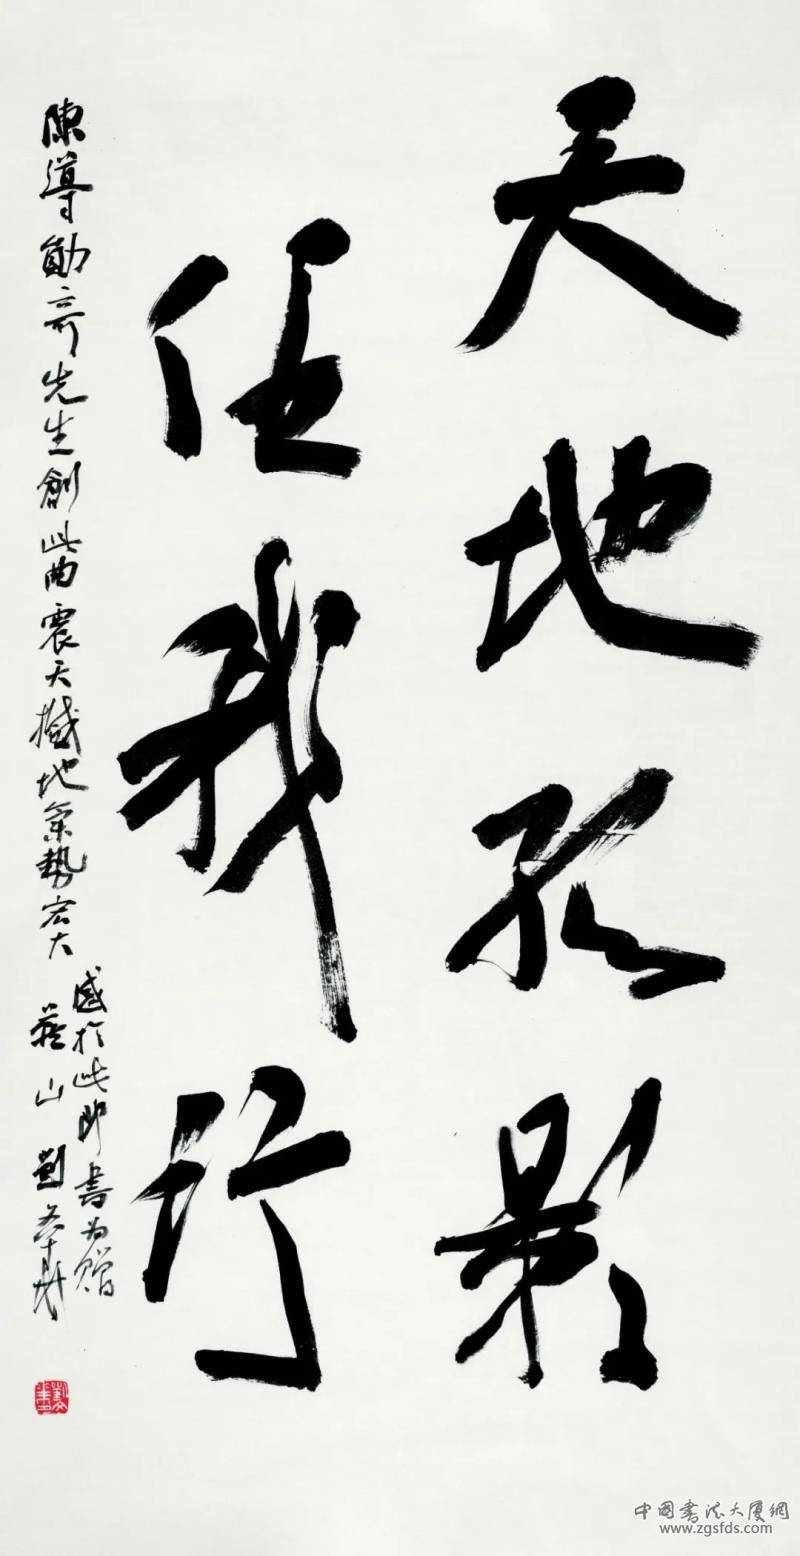 天地孤影
任我行
陳導勛奇先生創此曲震天撼地氣勢宏大
感於此即書為贈
山劉
中國書法大廈網
www.zgsfds.com